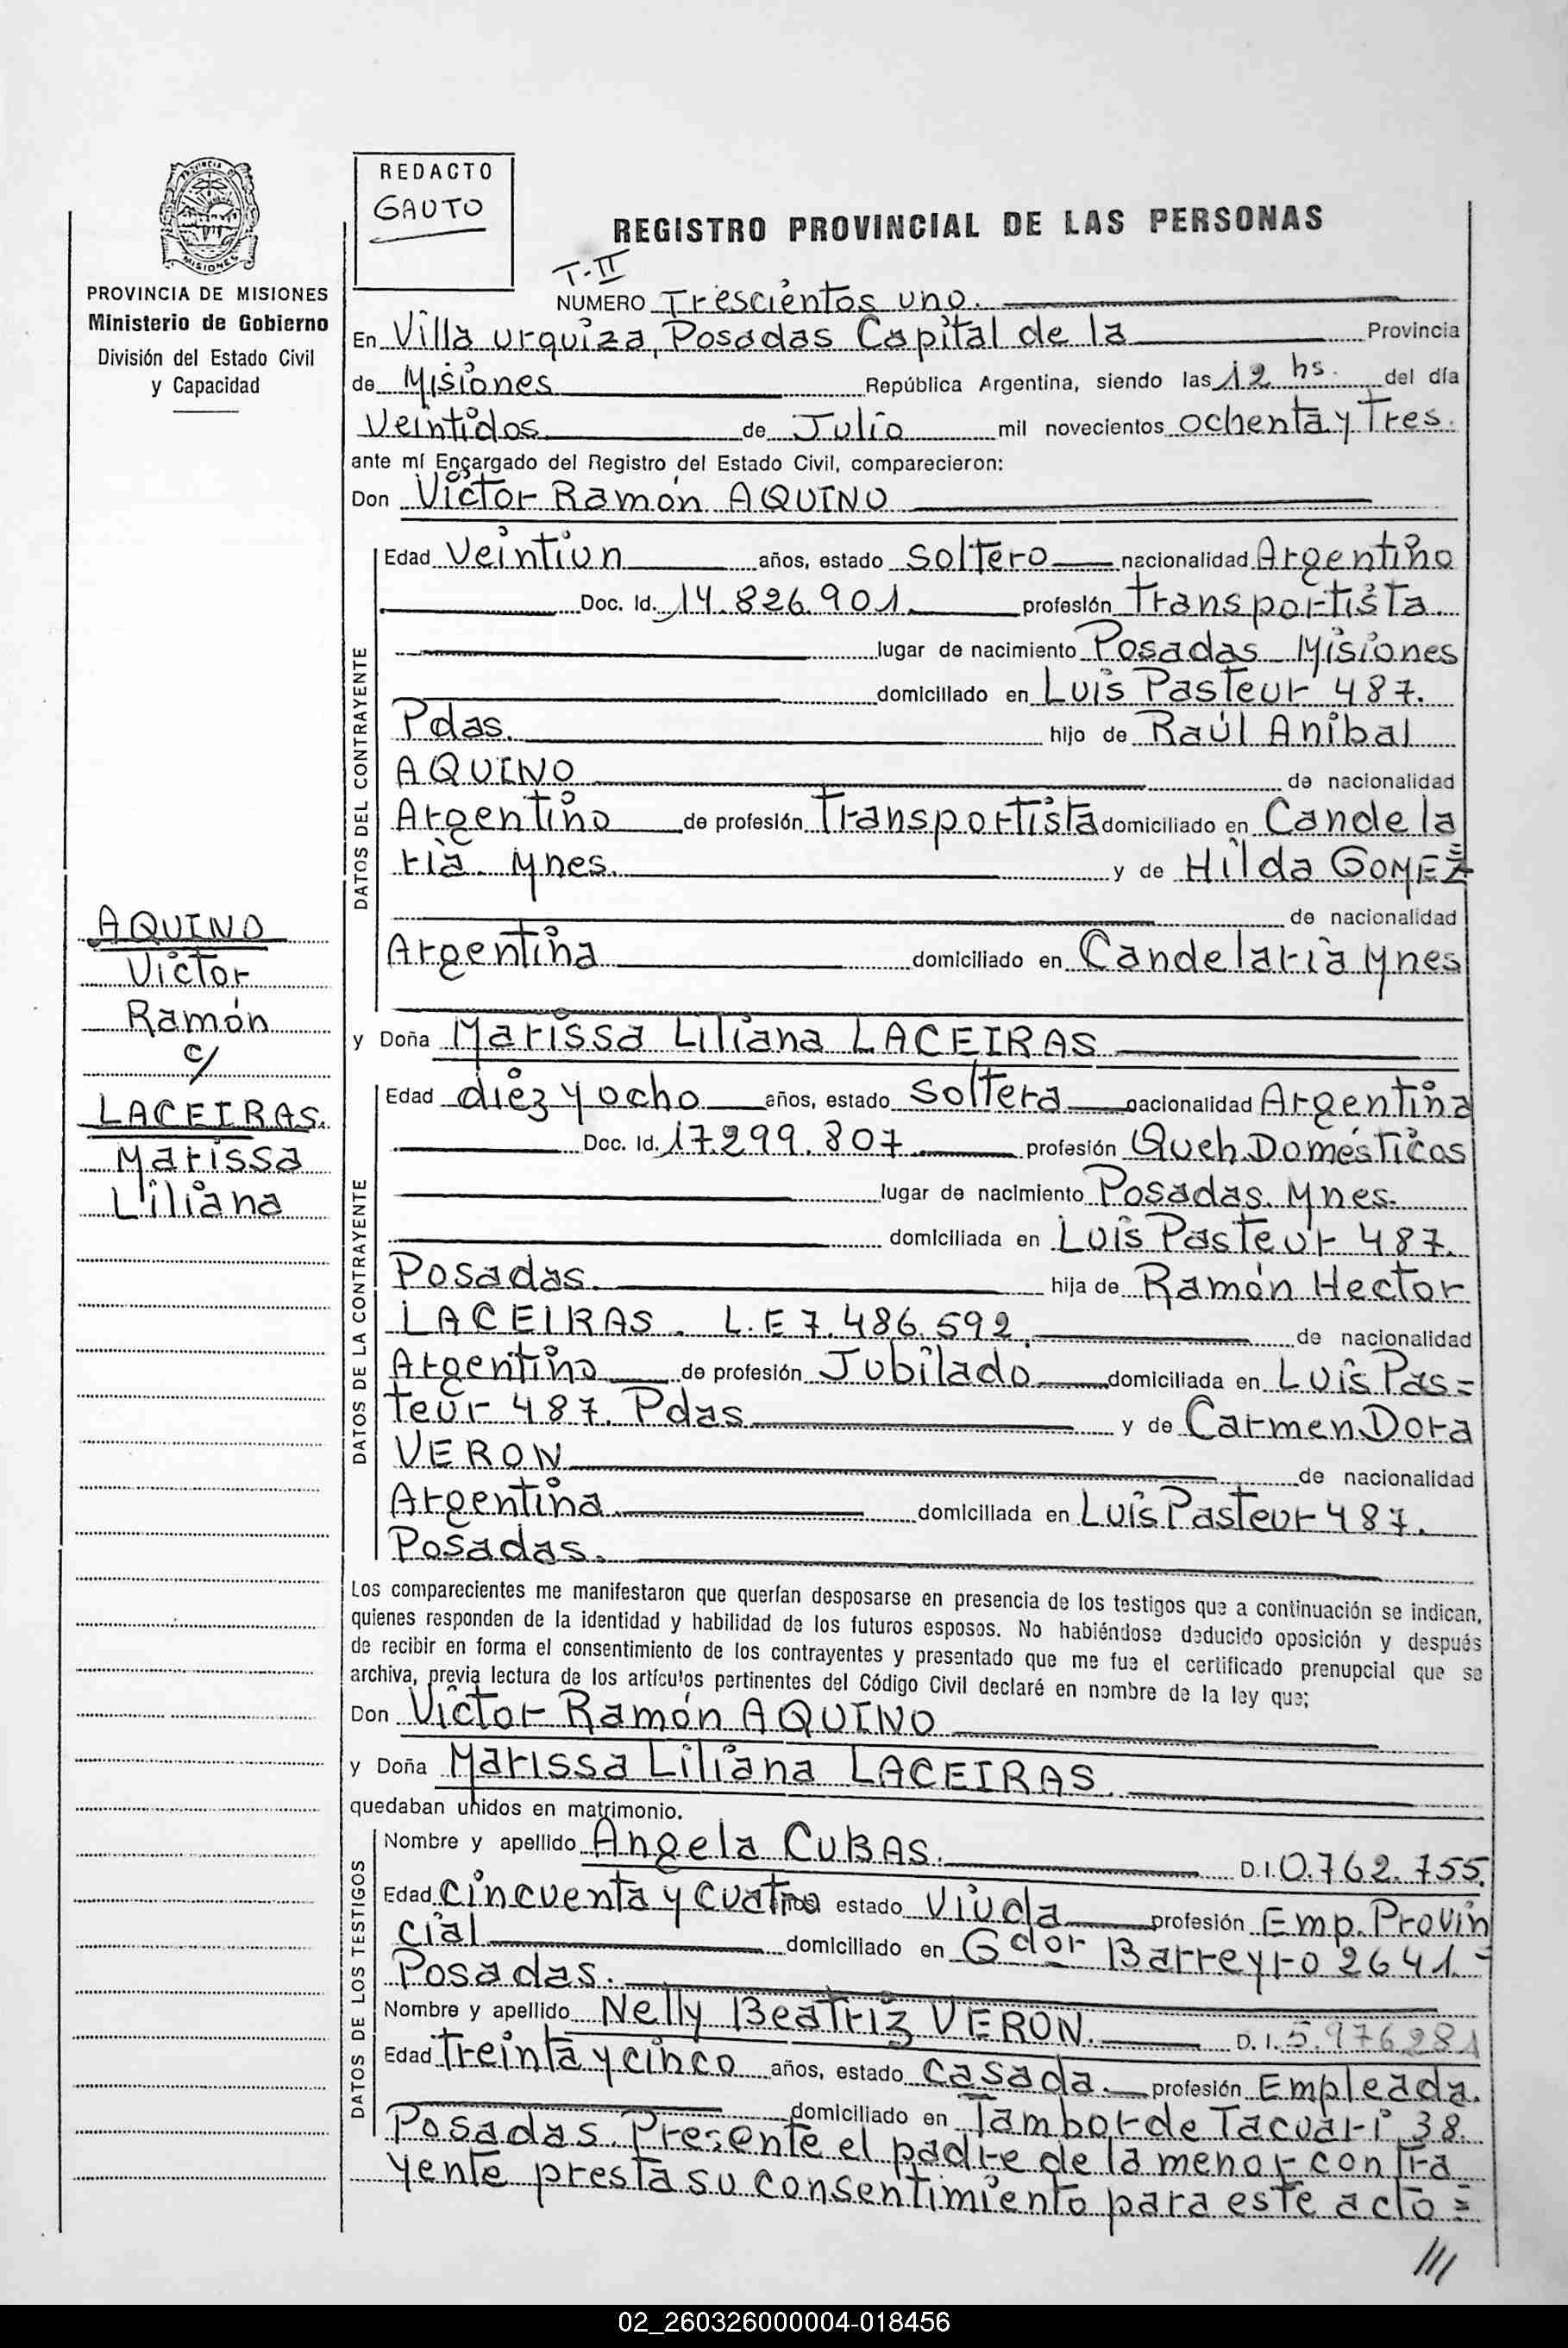 REDACTO
GAUTO
REGISTRO PROVINCIAL DE LAS PERSONAS
PROVINCIA DE MISIONES
Ministerio de Gobierno
División del Estado Civil
y Capacidad
T-II
NUMERO Trescientos uno.
En Villa urquiza, Posadas Capital de la Provincia
de Misiones República Argentina, siendo las 12 hs. del día
Veintidos de Julio mil novecientos ochenta y Tres.
ante mí Encargado del Registro del Estado Civil, comparecieron:
Don Víctor Ramón AQUINO
DATOS DEL CONTRAYENTE
Edad Veintiun años, estado Soltero nacionalidad Argentino
Doc. Id. 14.826.901 profesión Transportista
lugar de nacimiento Posadas Misiones
domiciliado en Luis Pasteur 487.
Pdas. hijo de Raúl Anibal
AQUINO de nacionalidad
Argentino de profesión Transportista domiciliado en Candela
ria Mnes. y de Hilda GOMEZ=
de nacionalidad
Argentina domiciliado en Candelaria Mnes
AQUINO
Victor
Ramón
c/
LACEIRAS.
Marissa
Liliana
y Doña Marissa Liliana LACEIRAS
DATOS DE LA CONTRAYENTE
Edad diez y ocho años, estado Soltera nacionalidad Argentina
Doc. Id. 17.299.807 profesión Queh. Domésticos
lugar de nacimiento Posadas. Mnes.
domiciliada en Luis Pasteur 487.
Posadas. hija de Ramón Hector
LACEIRAS. L.E 7.486.592. de nacionalidad
Argentino de profesión Jubilado domiciliada en Luis Pas=
teur 487. Pdas y de Carmen Dora
VERON de nacionalidad
Argentina domiciliada en Luis Pasteur 487.
Posadas.
Los comparecientes me manifestaron que querían desposarse en presencia de los testigos que a continuación se indican,
quienes responden de la identidad y habilidad de los futuros esposos. No habiéndose deducido oposición y después
de recibir en forma el consentimiento de los contrayentes y presentado que me fue el certificado prenupcial que se
archiva, previa lectura de los artículos pertinentes del Código Civil declaré en nombre de la ley que;
Don Victor Ramón AQUINO
y Doña Marissa Liliana LACEIRAS.
quedaban unidos en matrimonio.
DATOS DE LOS TESTIGOS
Nombre y apellido Angela CUBAS. D.I. 0.762.755.
Edad Cincuenta y cuatro estado Viuda profesión Emp. Provin
cial domiciliado en Gdor Barreyro 2641.=
Posadas.
Nombre y apellido Nelly Beatriz VERON. D.I. 5.976.281
Edad Treinta y cinco años, estado Casada. profesión Empleada.
domiciliado en Tambor de Tacuari 38.
Posadas. Presente el padre de la menor contra
yente presta su consentimiento para este acto=
///
02_260326000004-018456